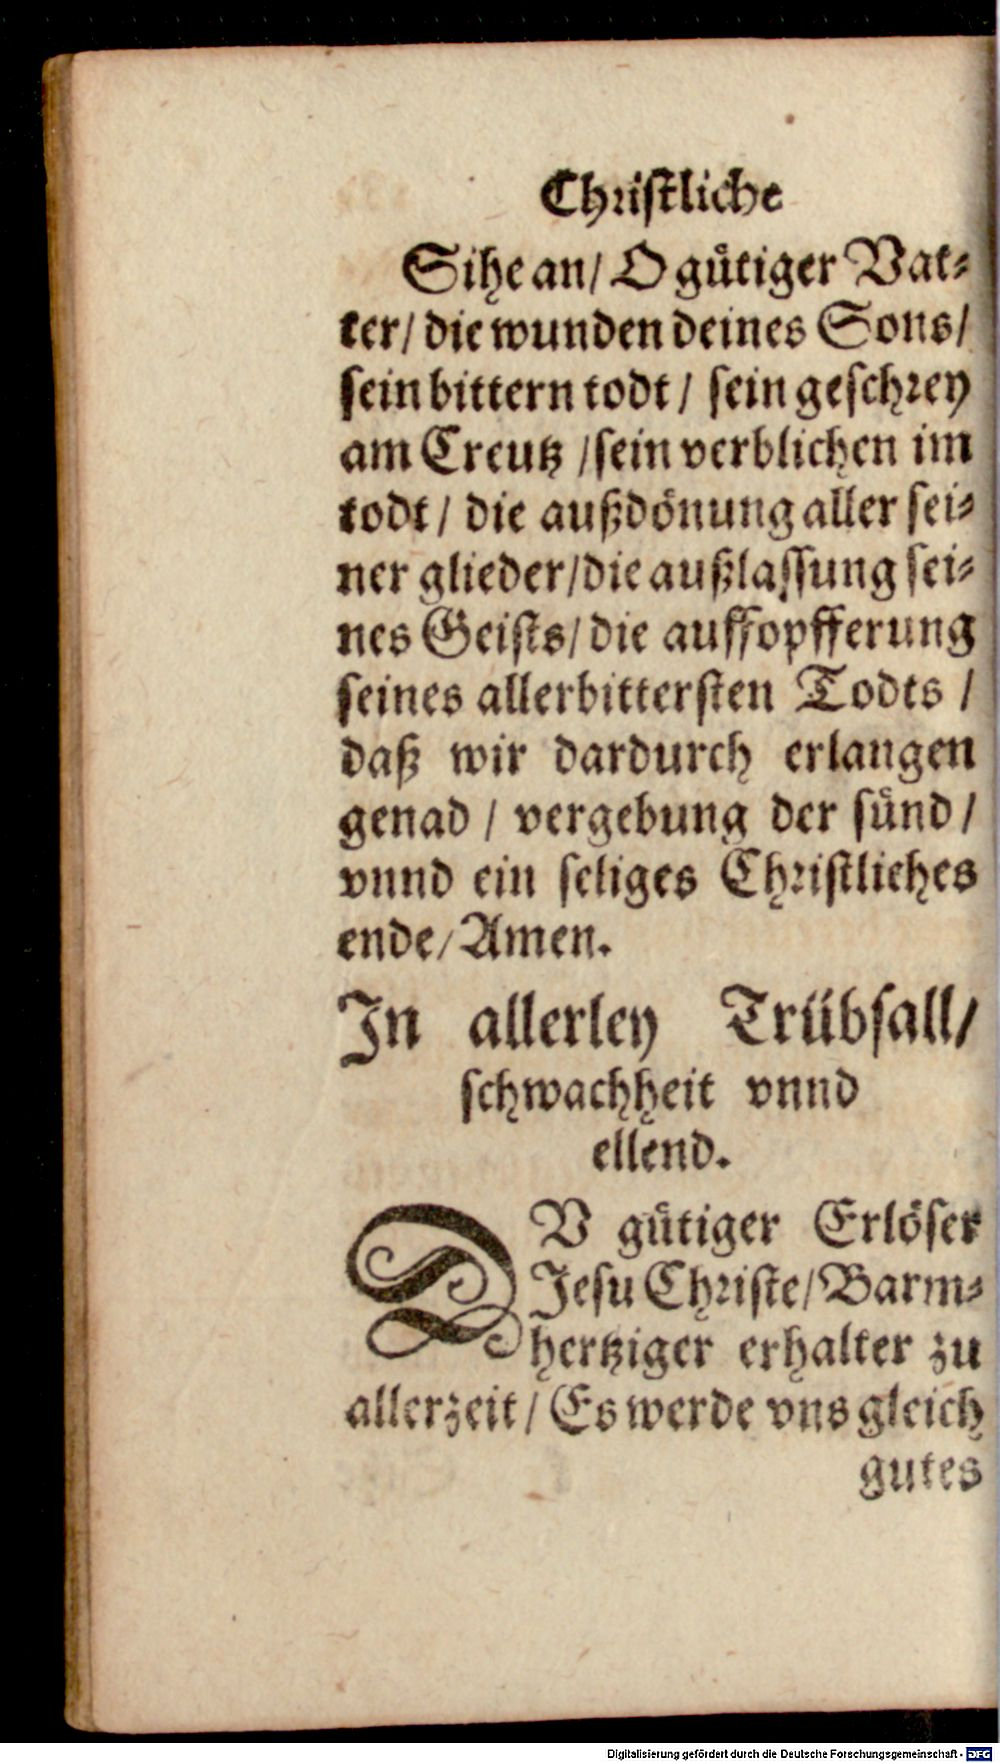 Christliche
Sihe an/ O gütiger Vat-
ter/ die wunden deines Sons/
sein bittern todt/ sein geschrey
am Creutz /sein verblichen im
todt/ die außdönung aller sei-
ner glieder/die außlassung sei-
nes Geists/ die auffopfferung
seines allerbittersten Todts /
daß wir dardurch erlangen
genad / vergebung der sünd/
vnnd ein seliges Christliches
ende/ Amen.
In allerley Trübsall/
schwachheit vnnd
ellend.
DV gütiger Erlöser
Jesu Christe/ Barm-
hertziger erhalter zu
allerzeit/ Es werde vns gleich
gutes
Digitalisierung gefördert durch die Deutsche Forschungsgemeinschaft - DFG